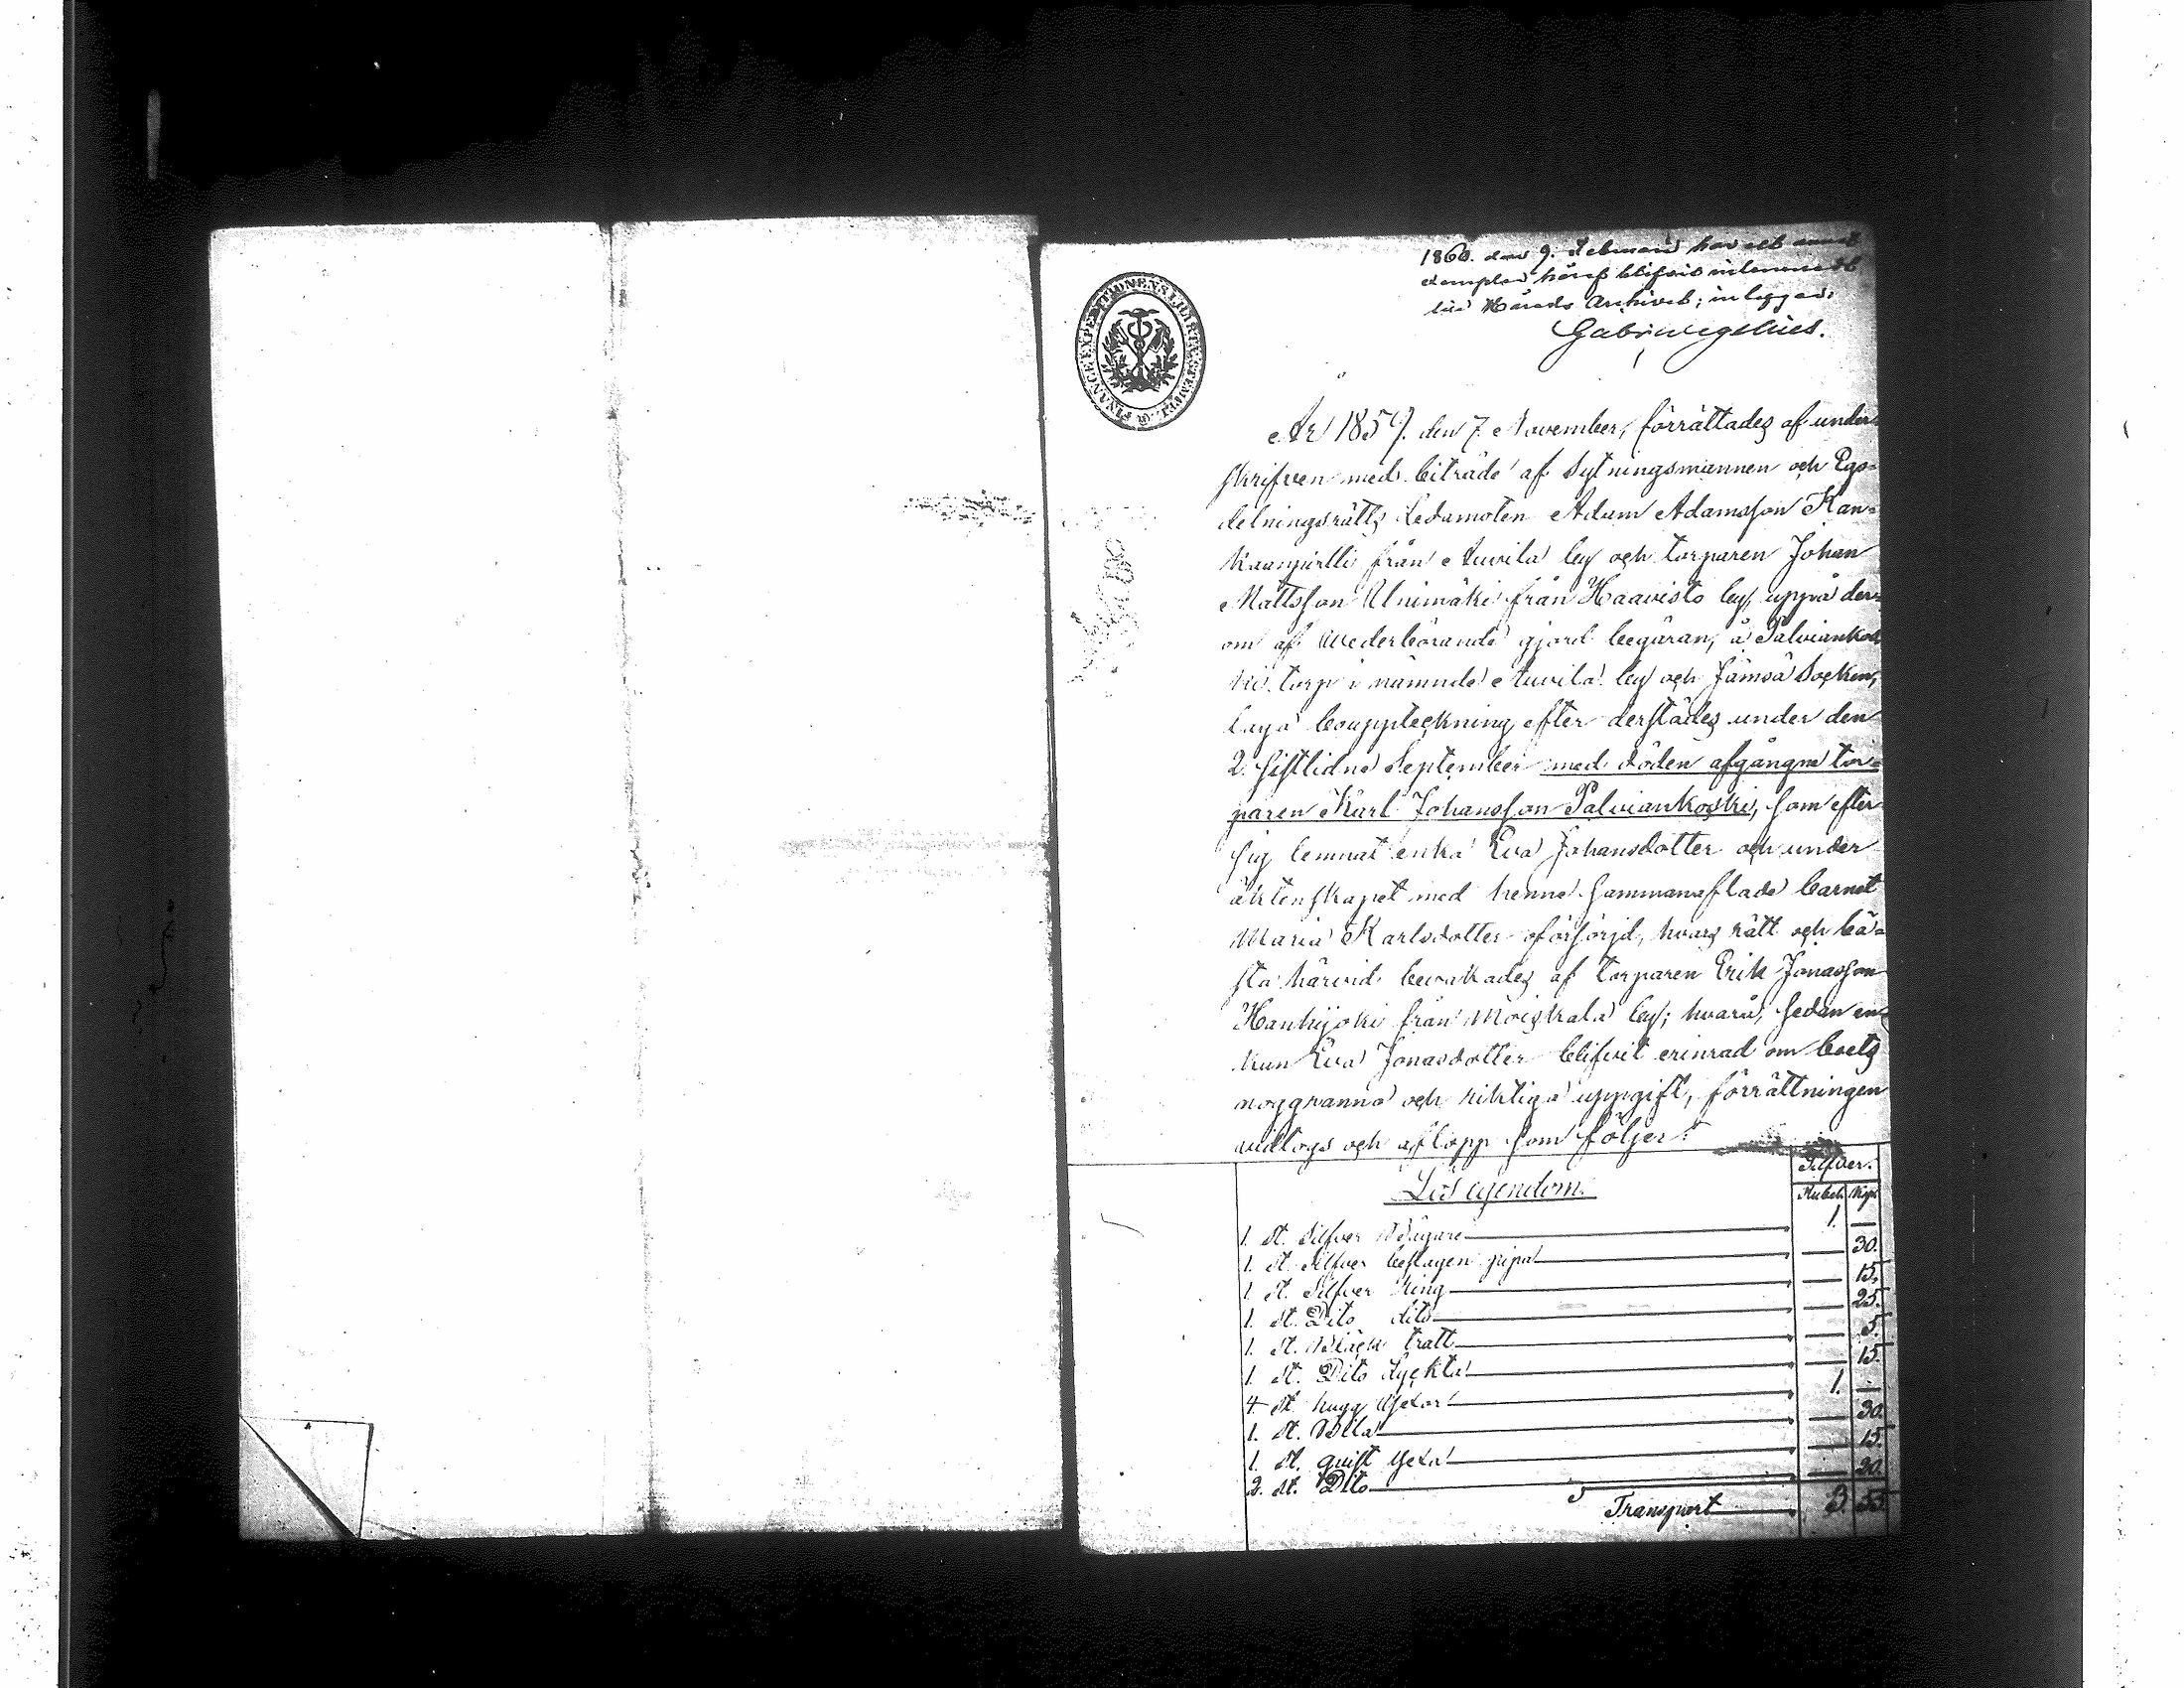 1860. den 9. Februari har ett annat
exemplar häraf blifvit inlemnadt
till Härads Archivet; intygar:
Gab: Wegelius.
FINANCE EXPEDITIONENS CHARTÆ STEMPEL
År 1859. den 7. November, förrättades af under-
skrifven med biträde af Sytningsmannen och Ego-
delningsrätts Ledamoten Adam Adamsson Kan-
kaanpirtti från Auvila by och torparen Johan
Mattsson Alnimäki från Haavisto by, uppå der-
om af Wederbörande gjord begäran, å Palviankos
ki torp i nämnde Auvila by och Jämsä Socken,
laga bouppteckning efter derstädes under den
2. sistlidne September med döden afgångne tor-
paren Karl Johansson Palviankoski, som efter
sig lemnat enka Eva Johansdotter och under
äktenskapet med henne sammanaflade barnet
Maria Karlsdotter oförsörjd, hvars rätt och bä-
sta härvid bevakades af torparen Erik Jonasson
Hankijoki från Moiskala by; hvarå, sedan en-
kan Eva Jonasdotter blifvit erinrad om boets
noggranna och riktiga uppgift, förrättningen
vidtogs och aflopp som följer:
Silfver.
Lös egendom. Rubel. Kop.
1. st. Silfver Bägare 1. —
1. st. Silfver beslagen pipa — 30.
1. st. Silfver Ring — 15.
1. st. Dito dito — 25.
1. st. Bläck tratt — 5.
1. st. Dito Lyckta — 15.
4. st. hugg Yxor 1. —
1. st. Bila — 30.
1. st. quist Yxa — 15.
2. st. Dito — 20.
Transport 3. 55.